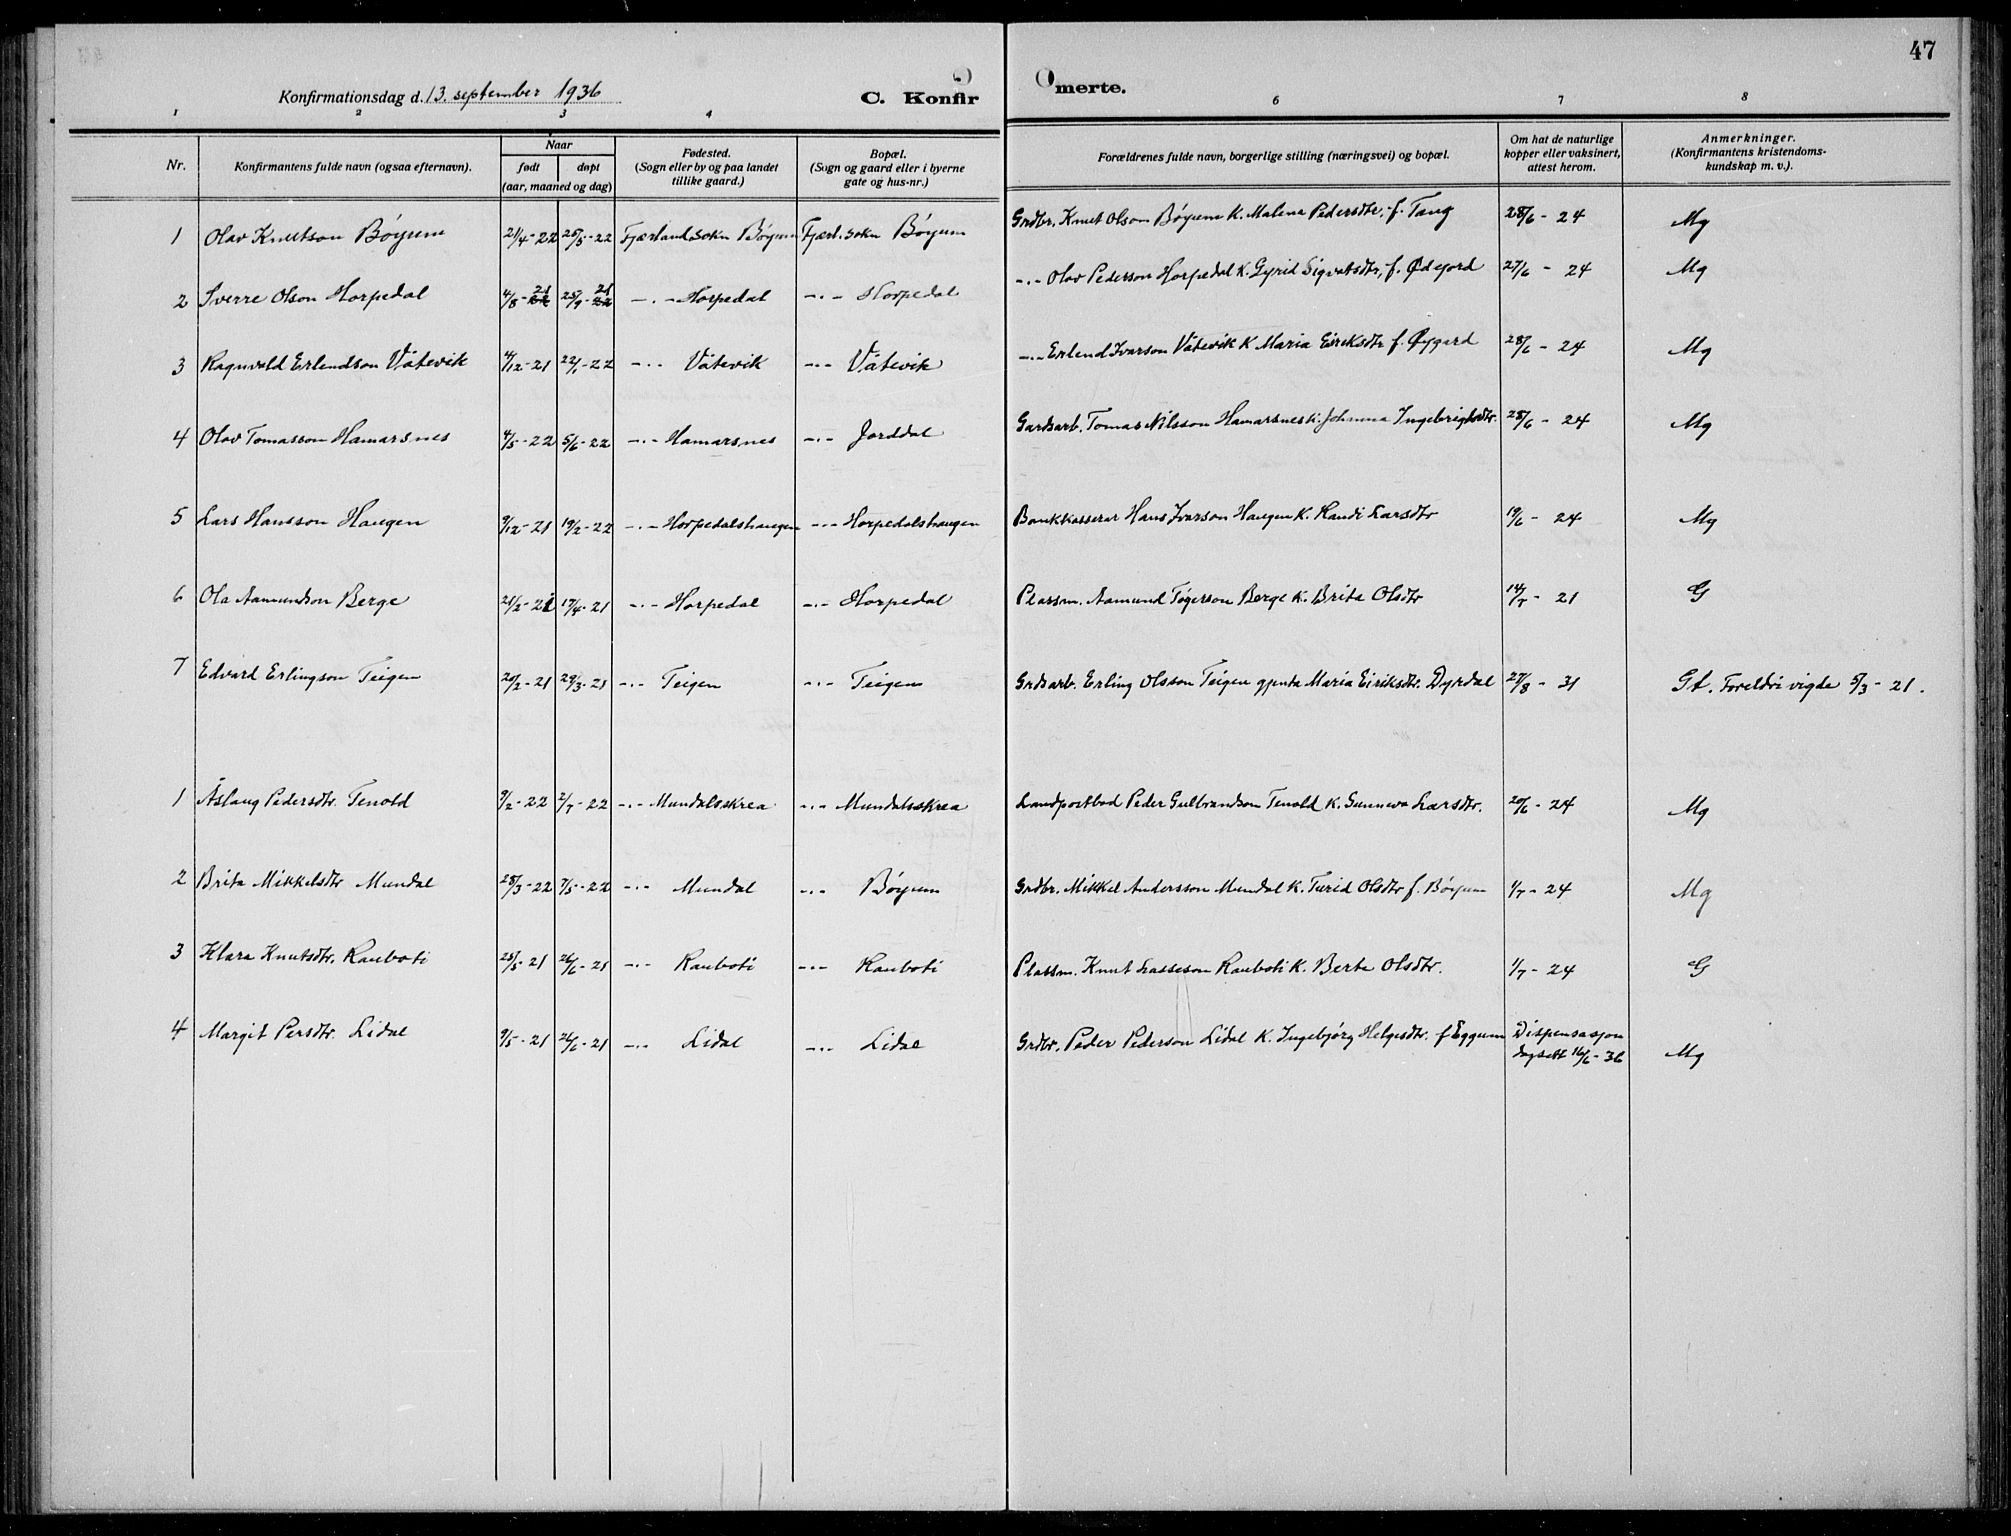 47
Konfirmationsdag d. 13. september 1936
C. Konfir
merte.
1 2 3 4 6 7 8
Nr.
Konfirmantens fulde navn (ogsaa efternavn).
Naar
født
døpt
(aar, maaned og dag)
Fødested.
(Sogn eller by og paa landet
tillike gaard.)
Bopæl.
(Sogn og gaard eller i byerne
gate og hus-nr.)
Forældrenes fulde navn, borgerlige stilling (næringsvei) og bopæl.
Om hat de naturlige
kopper eller vaksinert,
attest herom.
Anmerkninger.
(Konfirmantens kristendoms-
kundskap m. v.).
1 Olav Knutson Bøyum 21/4-22 25/5-22 Fjærland sokn Bøyum Fjærl. sokn Bøyum Grdbr. Knut Olson Bøyum K. Malena Pedersdtr. f. Tang 28/6 - 24 Mg
2 Sverre Olson Horpedal 4/8-21 25/9-21 -"- Horpedal -"- Horpedal -"- Olav Pederson Horpedal K. Gyrid Sigvatsdtr, f. Ødegord 27/6 - 24 Mg
3 Ragnvald Erlendson Våtevik 4/12-21 22/1-22 -"- Våtevik -"- Våtevik -"- Erlend Ivarson Våtevik K Maria Eiriksdtr f. Øygard 28/6 - 24 Mg
4 Olav Tomasson Hamarsnes 4/5-22 5/6-22 -"- Hamarsnes -"- Jorddal Gardsarb. Tomas Nilsson Hamarsnes K. Johanna Ingebrigtsdtr. 28/6 - 24 Mg
5 Lars Hansson Haugen 9/12-21 19/2-22 -"- Horpedalshaugen -"- Horpedalshaugen Bankkasserar Hans Ivarson Haugen K. Randi Larsdtr 19/6 - 24 Mg
6 Ola Aamundson Berge 21/2-21 17/4-21 -"- Horpedal -"- Horpedal Plassm. Aamund Tøgerson Berge K. Brita Olsdtr 14/7 - 21 G
7 Edvard Erlingson Teigen 20/2-21 29/3-21 -"- Teigen -"- Teigen Grdsarb. Erling Olsson Teigen gjenta Maria Eiriksdtr. Dyrdal 27/8 - 31 Gt. Foreldri vigde 5/3-21.
1 Åslaug Pedersdtr. Tenold 9/2-22 2/7-22 -"- Mundalsskrea -"- Mundalsskrea Landpostbod Peder Gulbrandson Tenold K. Gunneva Larsdtr. 20/6 - 24 Mg
2 Brita Mikkelsdtr Mundal 28/3-22 7/5-22 -"- Mundal -"- Bøyum Grdbr. Mikkel Andersson Mundal K. Turid Olsdtr f. Bøyum 1/7 - 24 Mg
3 Klara Knutsdtr. Rauboti 25/5-21 26/6-21 -"- Rauboti -"- Rauboti Plassm. Knut Lasseson Rauboti K. Berta Olsdtr. 1/7 - 24 G
4 Margit Persdtr. Lidal 9/5-21 26/6-21 -"- Lidal -"- Lidal Grdbr. Peder Pederson Lidal K. Ingebjørg Helgesdtr. f Eggum Dispensasjon
dagsett 16/6-36 Mg